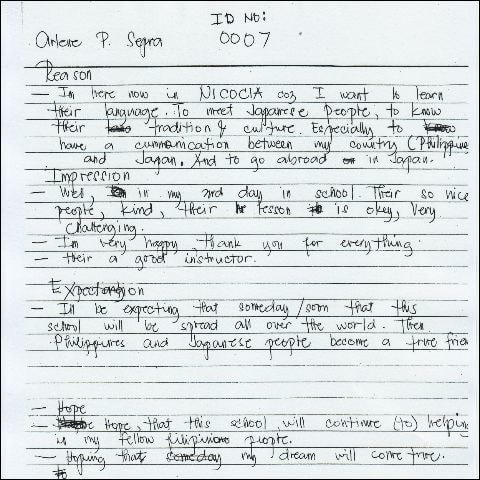 ID NO:
Arlene P. Segra 0007
Reason
— Im here now in NICOCIA coz I want to learn
their language. To meet Japanese people, to know
their tradition & culture. Especially to
have a communication between my country (Philippine
and Japan. And to go abroad in Japan.
Impression
— Well, in my 2nd day in school. Their so nice
people, kind, their lesson is okey, very
challenging.
— Im very happy, thank you for everything
— their a good instructor.
Expectation
— Ill be expecting that someday/soon that this
school will be spread all over the world. Then
Philippines and Japanese people become a true frien
— Hope
— Hope, that this school will continue (to) helping
is my fellow filipino people.
— Hoping that someday my dream will come true.